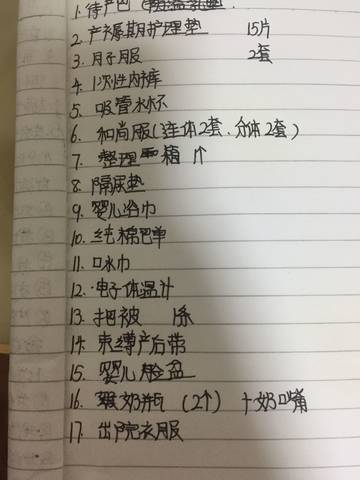 1. 待产巴
2. 产褥期护理垫 15片
3. 月子服 2套
4. 1次性内裤
5. 吸管水杯
6. 和尚服(连体2套、分体2套)
7. 整理箱 1个
8. 隔尿垫
9. 婴儿浴巾
10. 纯棉巴单
11. 口水巾
12. 电子体温计
13. 抱被 1条
14. 束缚产后带
15. 婴儿脸盆
16. 奶瓶 (2个) 十奶嘴
17. 出门院衣服